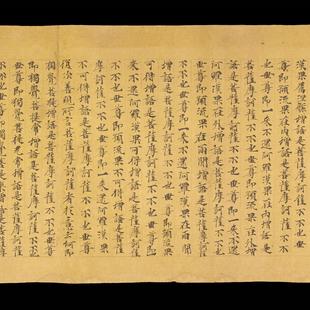 漢果屬涅槃增語是菩薩摩訶薩不不也世
尊即預流果在內增語是菩薩摩訶薩不不
也世尊即一來不還阿羅漢果在內增語是
菩薩摩訶薩不不也世尊即預流果在外增
語是菩薩摩訶薩不不也世尊即一來不還
阿羅漢果在外增語是菩薩摩訶薩不不也
世尊即預流果在兩間增語是菩薩摩訶薩
不不也世尊即一來不還阿羅漢果在兩間
增語是菩薩摩訶薩不不也世尊即預流果
可得增語是菩薩摩訶薩不不也世尊即一
來不還阿羅漢果可得增語是菩薩摩訶薩
不不也世尊即預流果不可得增語是菩薩
摩訶薩不不也世尊即一來不還阿羅漢果
不可得增語是菩薩摩訶薩不不也世尊
復次善現所言菩薩摩訶薩者於意云何即
獨覺菩提增語是菩薩摩訶薩不不也世尊
即獨覺菩提常增語是菩薩摩訶薩不不
也世尊即獨覺菩提